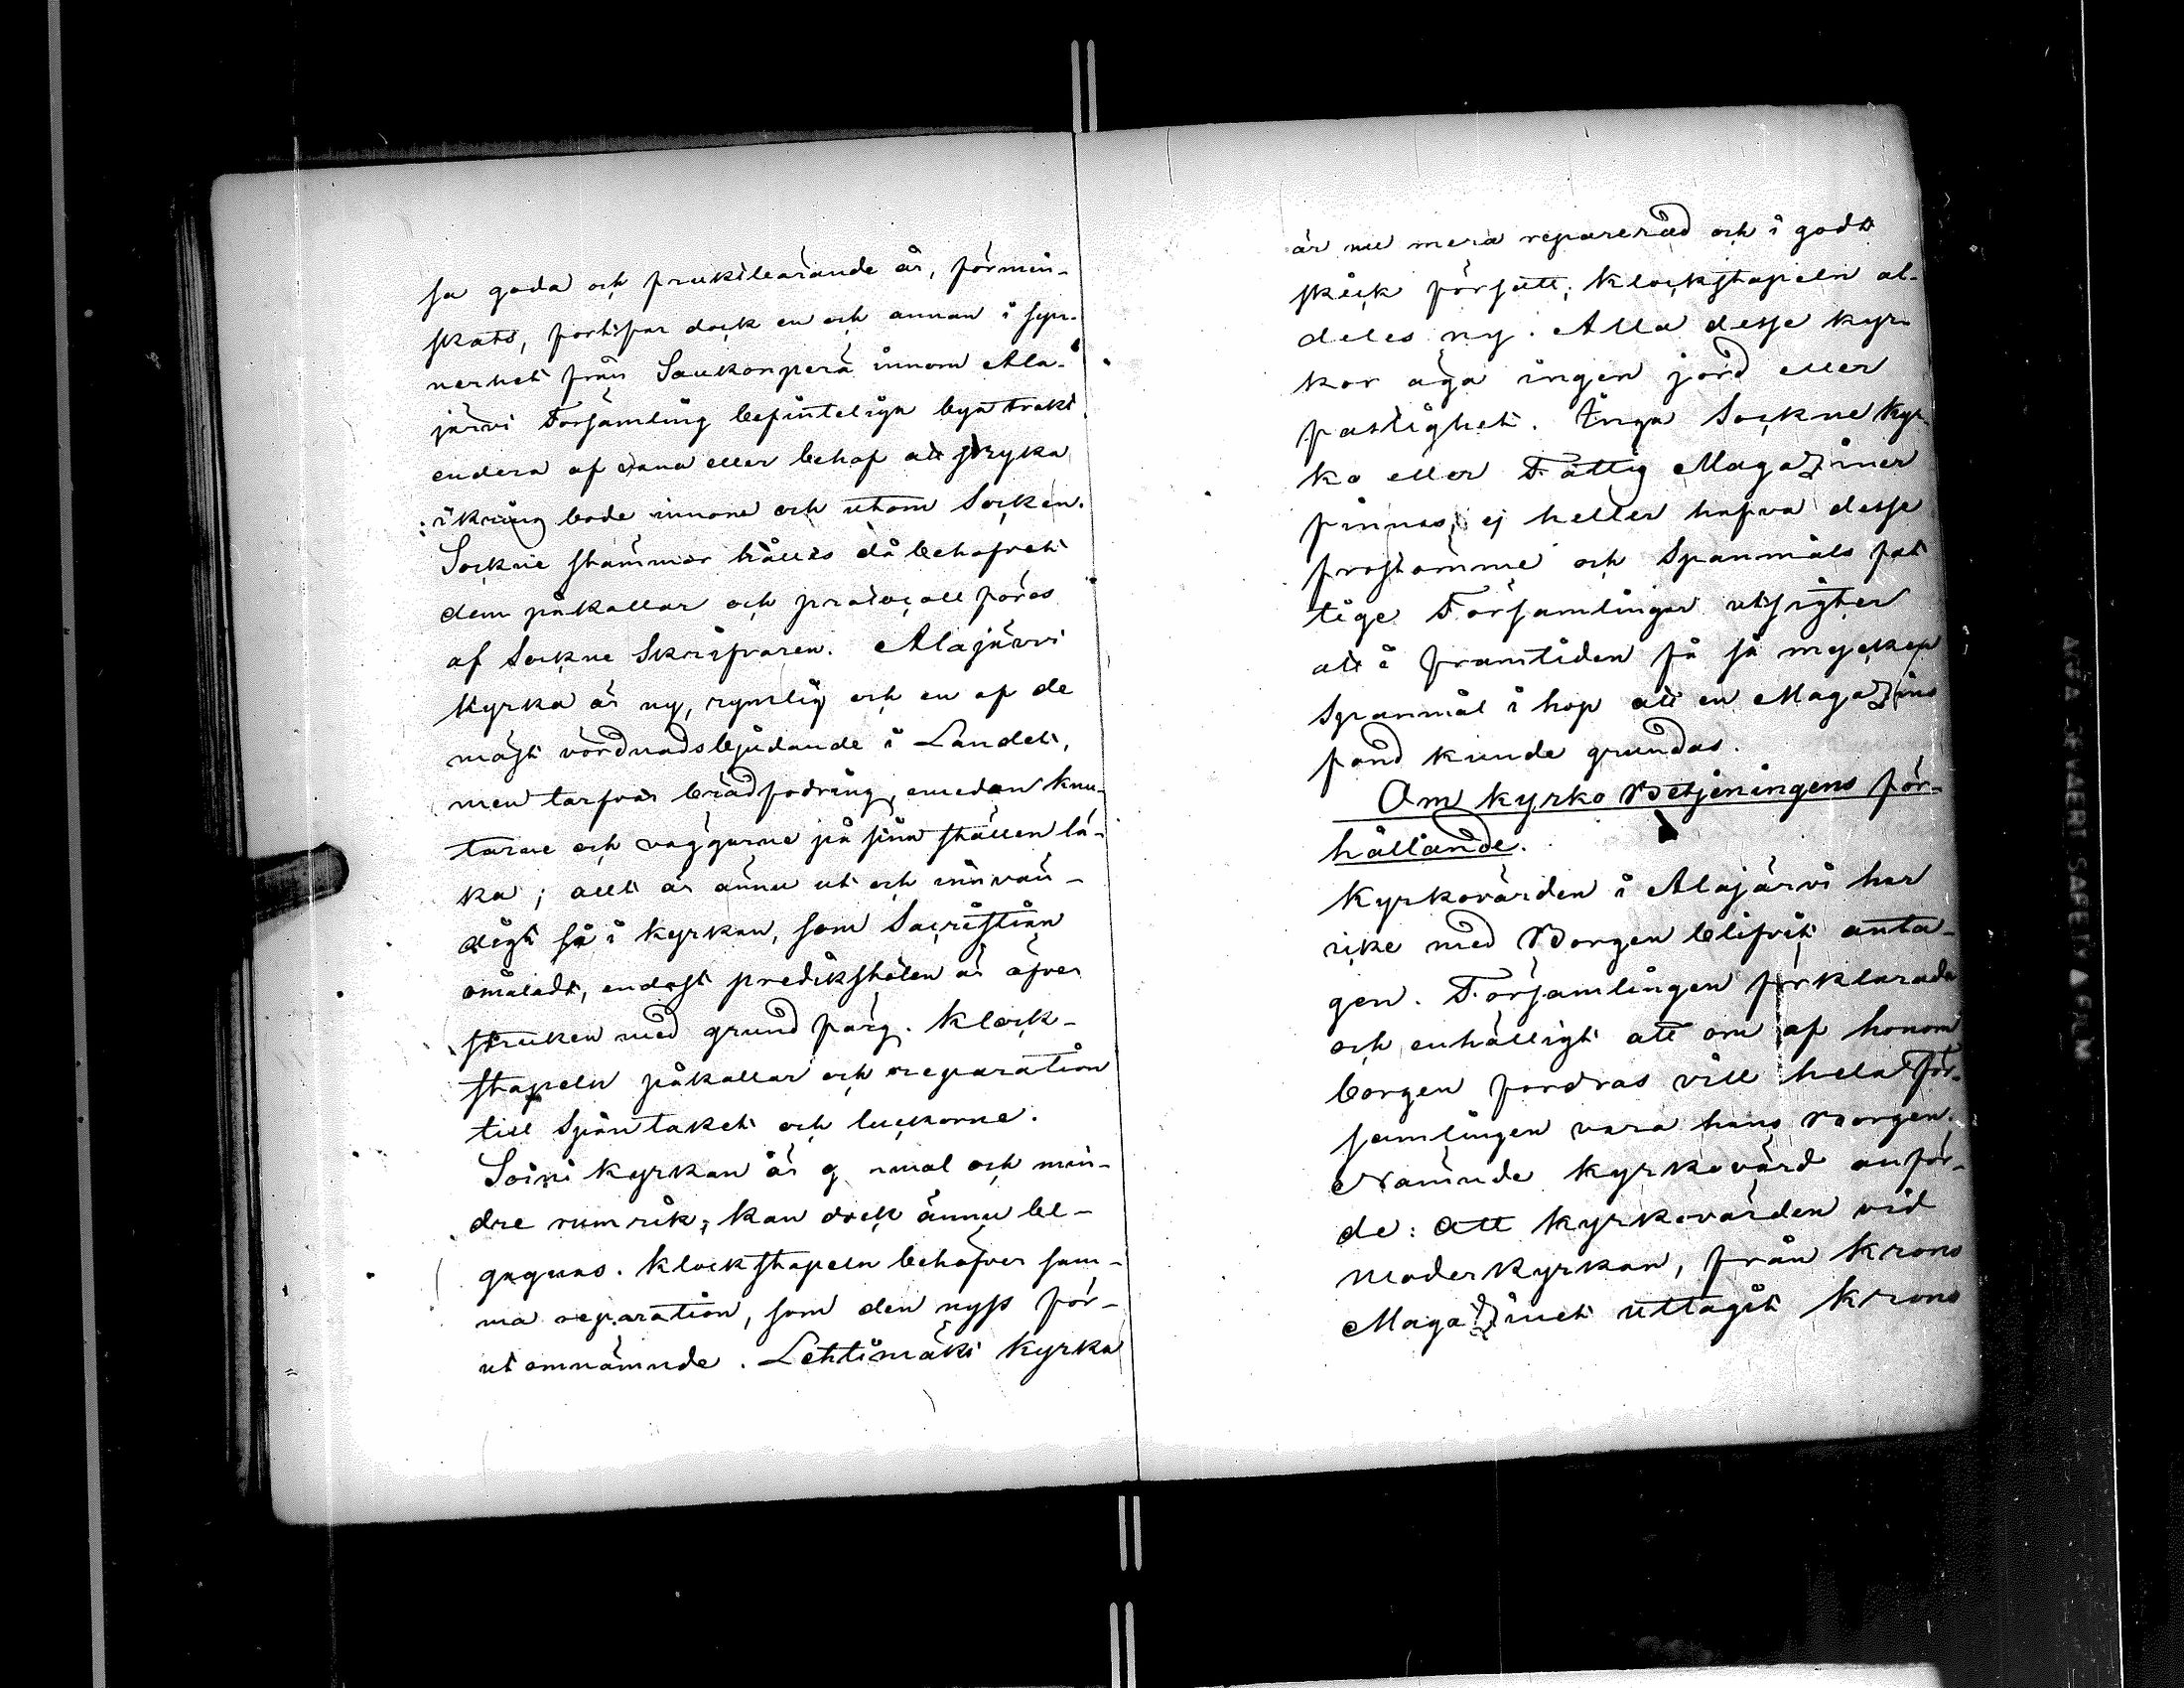 sa goda och fruktbärande år, förmin-
skats, fortfar dock en och annan i syn-
nerhet från Saukonperä innom Ala-
järvi Församling befinteliga bya trakt
endera af vana eller behof att stryka
ikring bode innom och utom Socken.
Sockne stämmor hålles då behofvet
dem påkallar och protocoll föres
af Sockne Skrifvaren. Alajärvi
Kyrka är ny, rymlig och en af de
mäst vördnadsbjudande i Landet,
men tarfvar brädfodring, emedan knu-
tarne och väggarne på sina ställen lä-
ka; allt är ännu ut och innvän-
digt så i kyrkan, som Sacristian
omåladt, endast predikstolen är öfver
struken med grund färg. Klock-
stapeln påkallar och reparation
till Spån taket och luckorne.
Soini Kyrkan är gammal och min-
dre rumrik, kan dock ännu be-
gagnas. Klockstapeln behöfver sam-
ma reparation, som den nyss för-
ut omnämnde. Lehtimäki Kyrka
är nu mera reparerad och i godt
skick försatt; Klockstapeln al-
deles ny. Alla desse kyr-
kor äga ingen jord eller
fastighet. Inga Sockne Kyr-
ko eller Fattig Magaziner
finnas, ej heller hafva desse
frostömme och Spanmåls fat
tige Församlingar utsigter
att i framtiden få så mycken
Spanmål i hop att en Magazins
fond kunde grundas.
Om kyrko Betjeningens för-
hållande.
Kyrkovärden i Alajärvi har
icke med Borgen blifvit anta-
gen. Församlingen förklarade
och enhälligt att om af honom
borgen fordras vill hela För-
samlingen vara hans Borgen.
Nämnde Kyrkovärd anför-
de: Att kyrkovärden vid
Moderkyrkan, från Krono
Magazinet uttagit Krono
AGFA SAFETY FILM